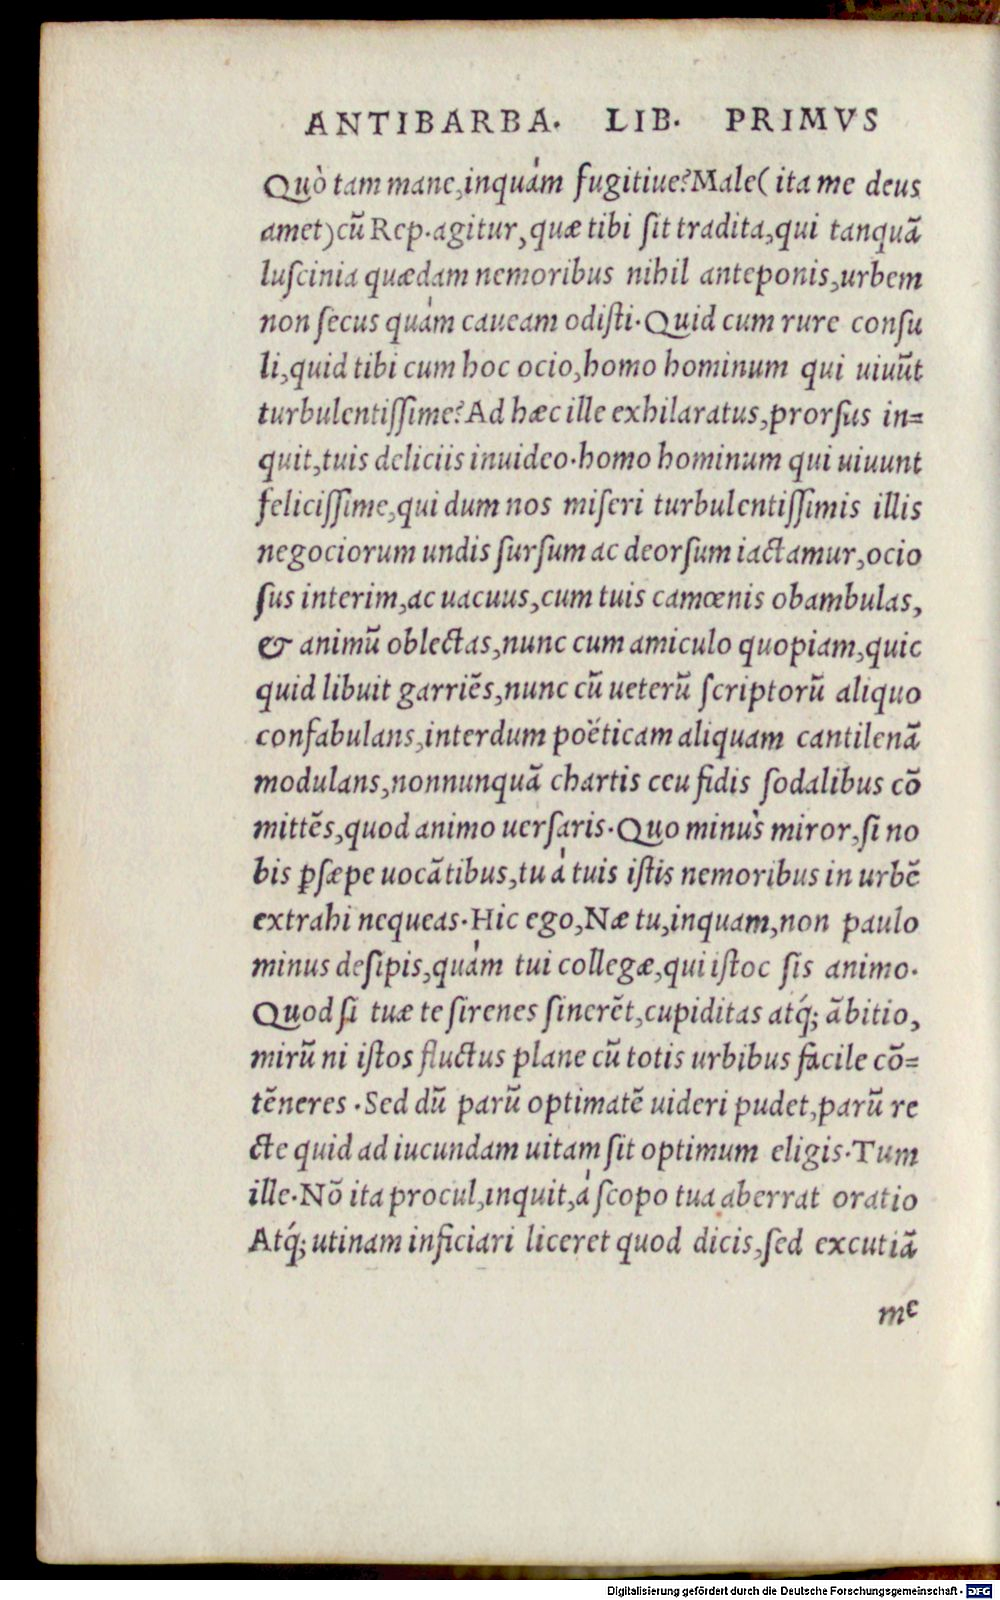 ANTIBARBA. LIB. PRIMVS
Quò tam mane,inquám fugitiue?Male( ita me deus
amet)cũ Rep.agitur,quæ tibi ſit tradita,qui tanquã
luſcinia quædam nemoribus nihil anteponis,urbem
non ſecus quàm caueam odiſti.Quid cum rure conſu
li,quid tibi cum hoc ocio,homo hominum qui uiuũt
turbulentiſſime?Ad hæc ille exhilaratus,prorſus in=
quit,tuis deliciis inuideo.homo hominum qui uiuunt
feliciſſime,qui dum nos miſeri turbulentiſſimis illis
negociorum undis ſurſum ac deorſum iactamur,ocio
ſus interim,ac uacuus,cum tuis camœnis obambulas,
& animũ oblectas,nunc cum amiculo quopiam,quic
quid libuit garriẽs,nunc cũ ueterũ ſcriptorũ aliquo
confabulans,interdum poëticam aliquam cantilenã
modulans,nonnunquã chartis ceu fidis ſodalibus cõ
mittẽs,quod animo uerſaris.Quo minus miror,ſi no
bis p̱ſæpe uocãtibus,tu à tuis iſtis nemoribus in urbẽ
extrahi nequeas.Hic ego,Næ tu,inquam,non paulo
minus deſipis,quàm tui collegæ,qui iſtoc ſis animo.
Quod ſi tuæ te ſirenes ſinerẽt,cupiditas atq́; ãbitio,
mirũ ni iſtos fluctus plane cũ totis urbibus facile cõ=
tẽneres .Sed dũ parũ optimatẽ uideri pudet,parũ re
cte quid ad iucundam uitam ſit optimum eligis.Tum
ille.Nõ ita procul,inquit,à ſcopo tua aberrat oratio
Atq́; utinam inficiari liceret quod dicis,ſed excutiã
me
Digitalisierung gefördert durch die Deutsche Forschungsgemeinschaft - DFG